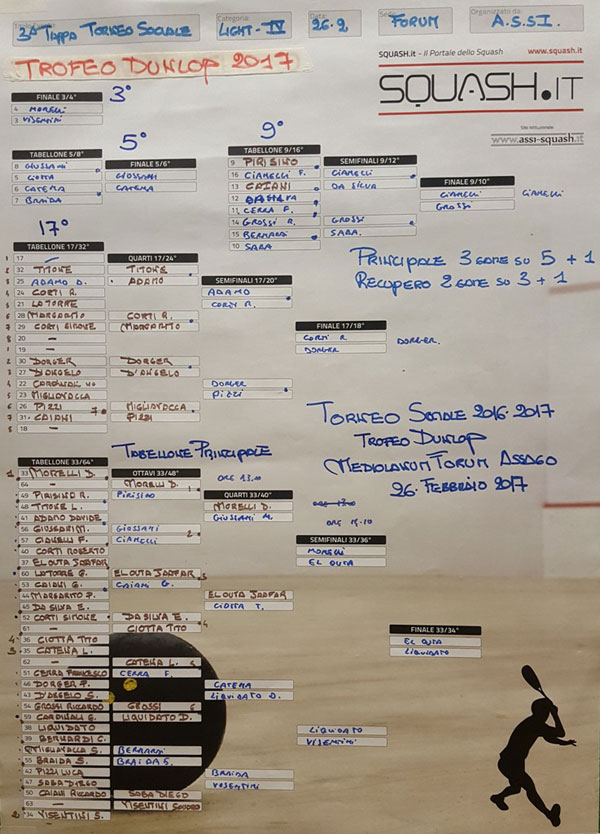 3ª TAPPA TORNEO SOCIALE
Categoria:
LIGHT-IV
Data:
26.2
FORUM
Organizzato da:
A.S.S.I.
TROFEO DUNLOP 2017
SQUASH.it - Il Portale dello Squash
www.squash.it
SQUASH.IT
Site Istituzionale
www.assi-squash.it
3°
FINALE 3/4°
4 MORELLI
3 VISENTINI
5°
TABELLONE 5/8°
FINALE 5/6°
8 GIUSSANI
GIUSSANI
5 CIOTTA
CATENA
6 CATENA
7 BRAIDA
9°
TABELLONE 9/16°
SEMIFINALI 9/12°
9 PIRISINO
CIANELLI
16 CIANELLI F.
DA SILVA
13 CAIANI
FINALE 9/10°
12 DA SILVA
CIANELLI
CIANELLI
11 CERRA F.
GROSSI
14 GROSSI R.
GROSSI
15 BERNARDI
SABA
10 SABA
PRINCIPALE 3 GAME SU 5 + 1
RECUPERO 2 GAME SU 3 + 1
17°
TABELLONE 17/32°
QUARTI 17/24°
17 -
TIMONE
32 TIMONE
ADAMO
25 ADAMO D.
SEMIFINALI 17/20°
24 CORTI R.
ADAMO
21 LATORRE
CORTI R.
28 MARGARITO
CORTI R.
29 CORTI SIMONE
MARGARITO
FINALE 17/18°
20 -
CORTI R.
19 -
DORGER
DORGER.
30 DORGER
DORGER
27 D'ANGELO
D'ANGELO
22 CARDINALI
DORGER
23 MIGLIAVACCA
PIZZI
26 PIZZI
MIGLIAVACCA
31 CAIANI
PIZZI
18 -
TORNEO SOCIALE 2016-2017
TROFEO DUNLOP
MEDIOLANUM FORUM ASSAGO
26. FEBBRAIO 2017
TABELLONE PRINCIPALE
TABELLONE 33/64°
OTTAVI 33/48°
33 MORELLI D.
MORELLI D.
ORE 13.00
64 -
PIRISINO
QUARTI 33/40°
49 PIRISINO R.
MORELLI D.
48 TIMONE L.
GIUSSANI M.
41 ADAMO DAVIDE
56 GIUSSANI M.
GIUSSANI
57 CIANELLI F.
CIANELLI
SEMIFINALI 33/36°
40 CORTI ROBERTO
MORELLI
37 EL OUTA JAAFAR
EL OUTA
60 LATORRE G.
EL OUTA JAAFAR
53 CAIANI G.
CAIANI G.
44 MARGARITO P.
EL OUTA JAAFAR
45 DA SILVA E.
CIOTTA T.
52 CORTI SIMONE
DA SILVA E.
61 -
CIOTTA TITO
FINALE 33/34°
36 CIOTTA TITO
EL OUTA
35 CATENA L.
LIQUIDATO
62 -
CATENA L.
51 CERRA FRANCESCO
CERRA F.
46 DORGER P.
CATENA
43 D'ANGELO S.
LIQUIDATO D.
54 GROSSI RICCARDO
GROSSI
59 CARDINALI G.
LIQUIDATO D.
38 LIQUIDATO
LIQUIDATO
39 BERNARDI C.
VISENTINI
MIGLIAVACCA S.
BERNARDI
55 BRAIDA S.
BRAIDA S.
42 PIZZI LUCA
BRAIDA
47 SABA DIEGO
VISENTINI
50 CAIANI RICCARDO
SABA DIEGO
63 -
VISENTINI SANDRO
34 VISENTINI S.